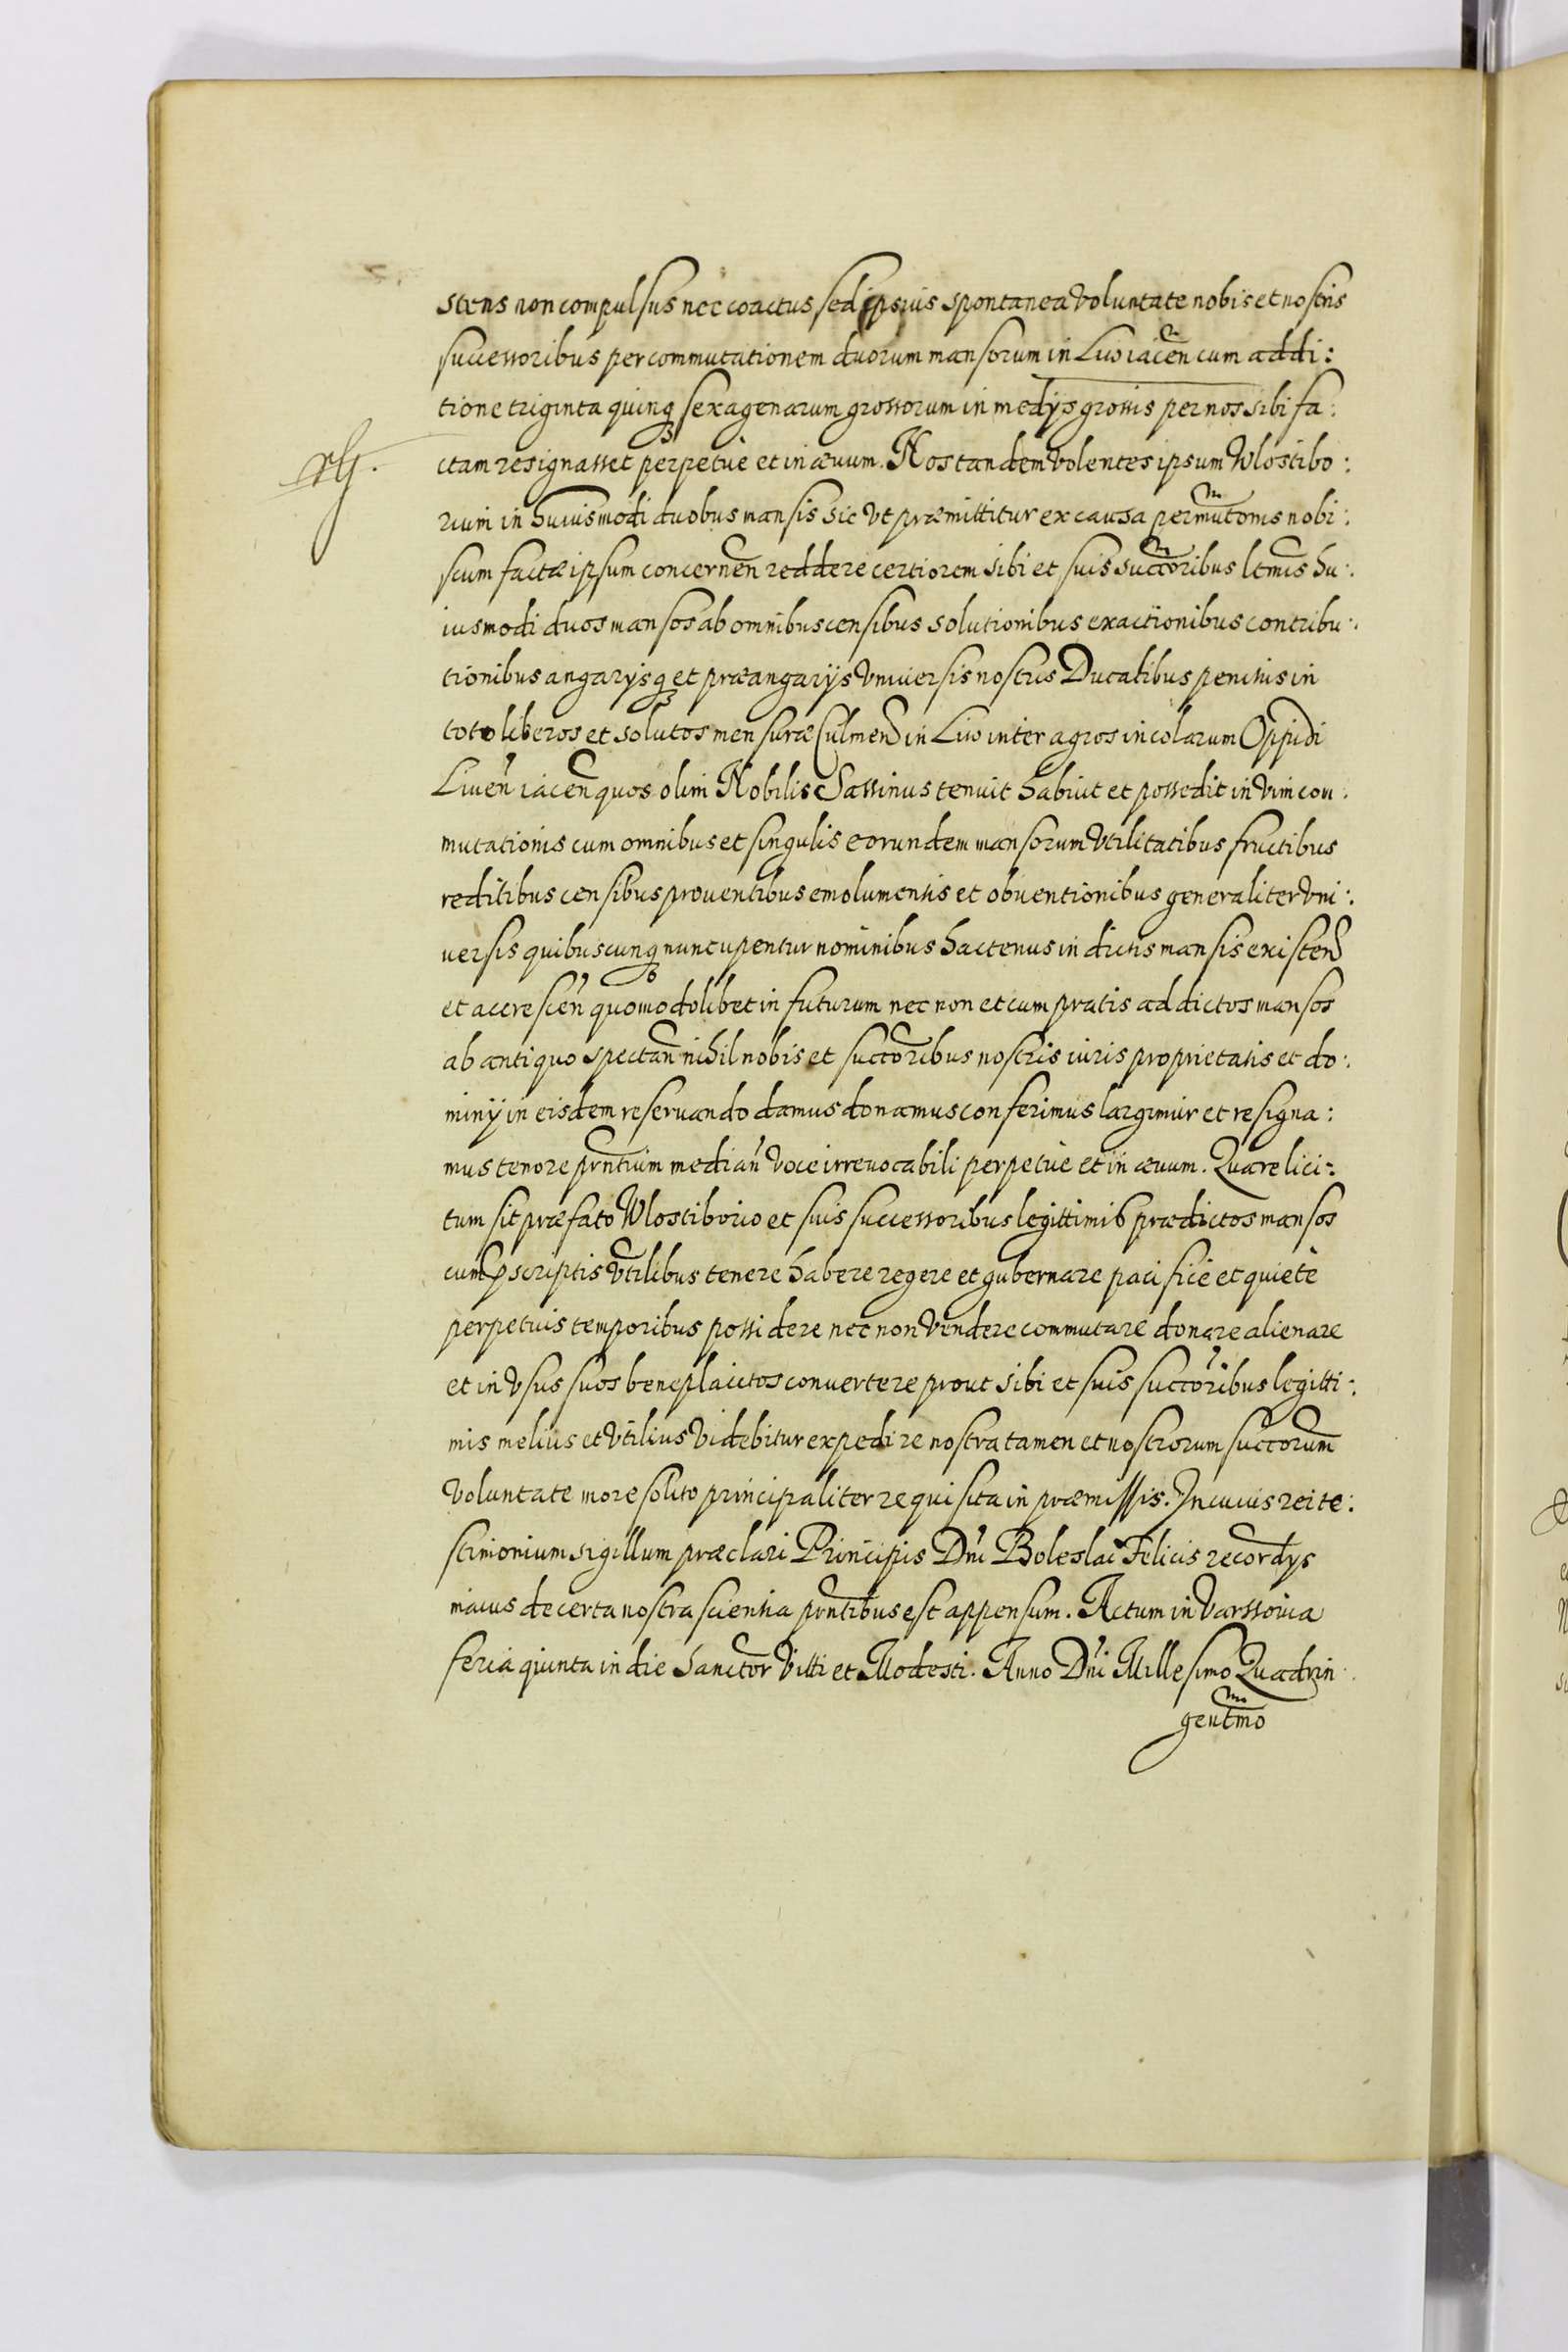 stens non compulsus nec coactus sed ipsius spontanea voluntate nobis et nostris
successoribus per commutationem duorum mansorum in Liw iacen cum addi:
tione triginta quinq sexagenarum grossorum in medys grossis per nos sibi fa:
ctam resignasset perpetuè et in ævum. Nos tandem volentes ipsum Wlostibo:
rium in huiusmodi duobus mansis sic vt præmittitur ex causa permutonis nobi:
scum factæ ipsum concernen reddere certiorem sibi et suis succoribus ltmis hu:
iusmodi duos mansos ab omnibus censibus solutionibus exactionibus contribu:
tionibus angarysq et præangarijs vniuersis nostris Ducalibus penitus in
toto liberos et solutos mensuræ Culmen in Liw inter agros incolarum Oppidi
Liuen iacen quos olim Nobilis Sassinus tenuit habuit et possedit in vim con:
mutationis cum omnibus et singulis eorundem mansorum vtilitatibus fructibus
reditibus censibus prouentibus emolumentis et obuentionibus generaliter vni:
uersis quibuscunq nuncupentur nominibus hactenus in dictis mansis existen
et accrescen quomodolibet in futurum nec non et cum pratis ad dictos mansos
ab antiquo spectan nihil nobis et succoribus nostris iuris proprietatis et do:
minÿ in eisdem reseruando damus donamus conferimus largimur et resigna:
mus tenore pntium median voce irreuocabili perpetuè et in ævum. Quare lici:
tum sit præfato Wlostiborio et suis successoribus legittimis prædictos mansos
cum pscriptis vtilibus tenere habere regere et gubernare pacificè et quietè
perpetuis temporibus possidere nec non vendere commutare donare alienare
et in vsus suos beneplacitos conuertere prout sibi et suis succoribus legitti:
mis melius et vtilius videbitur expedire nostra tamen et nostrorum succorum
voluntate more solito principaliter requisita in præmissis. In cuius rei te:
stimonium sigillum præclari Principis Dni Boleslai Felicis recordys
maius de certa nostra scientia pntibus est appensum. Actum in Varssouia
feria quinta in die Sanctor Viti et Modesti. Anno Dni Millesimo Quadrin
gentmo